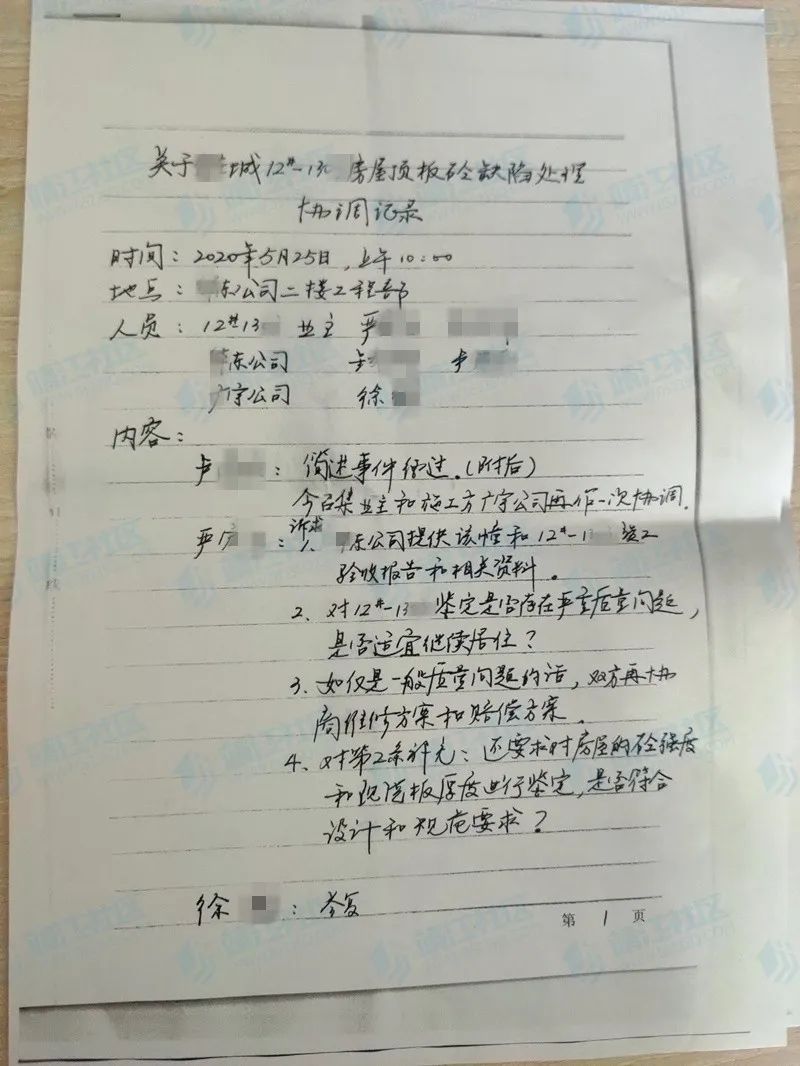 关于 城12#-13 房屋顶板砼缺陷处理
协调记录
时间：2020年5月25日，上午10:00
地点： 东公司二楼工程部
人员：12#13 业主 严
东公司 卢
广宇公司 徐
内容：
卢 ：简述事件经过.(附后)
今召集业主和施工方广宇公司再作一次协调.
严 ：诉求
1、 东公司提供该幢和12#-13 竣工
验收报告和相关资料。
2、对12#-13 鉴定是否存在严重质量问题，
是否适宜继续居住？
3、如仅是一般质量问题的话，双方再协
商维修方案和赔偿方案.
4、对第2条补充：还要求对房屋的砼强度
和现浇板厚度进行鉴定，是否符合
设计和规范要求？
徐 ：答复
第 1 页
靖江社区